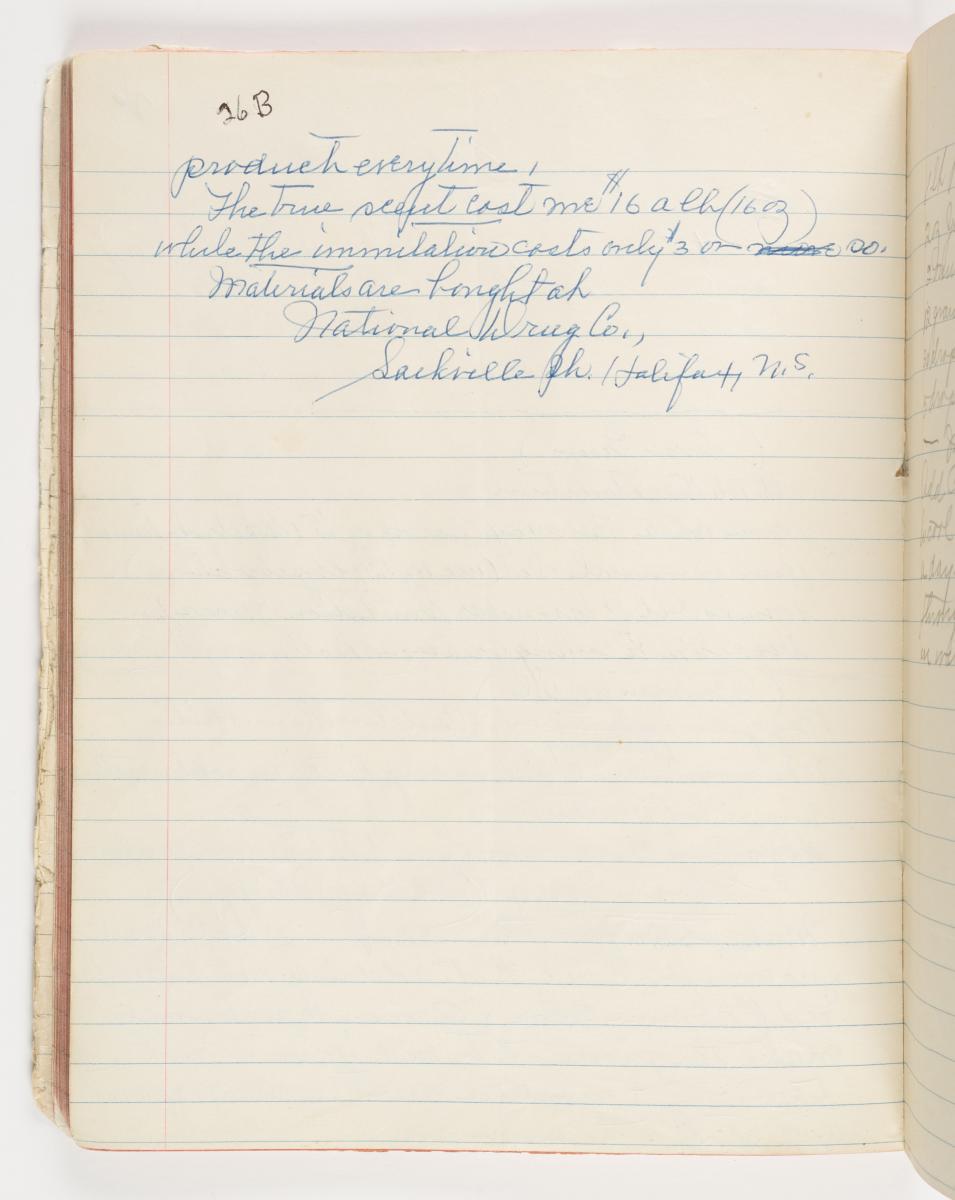 26 B
product everytime,
The true scent cost me $16 a lb (16 oz)
while the immitation costs only $3 or so.
Materials are bought at
National Drug Co.,
Sackville Ph. Halifax, N.S.